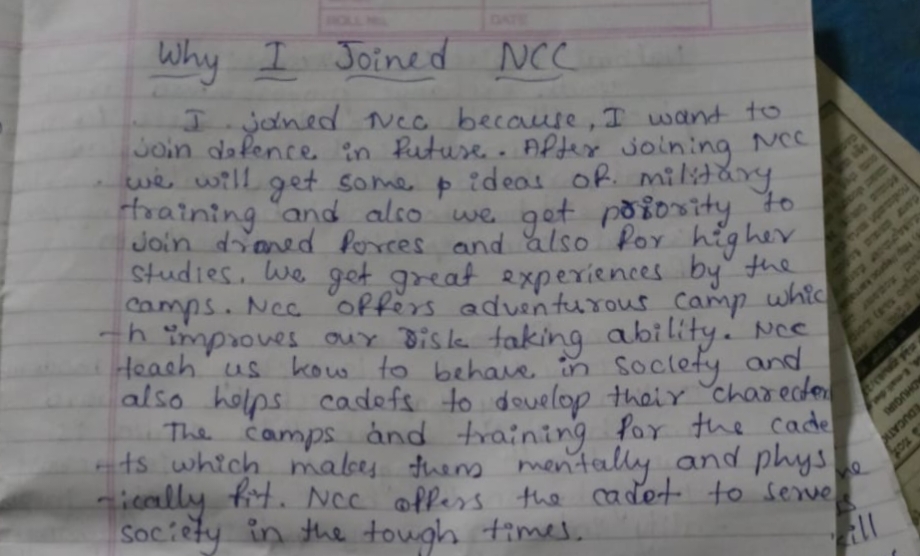 ROLL NO. DATE
Why I Joined NCC
I joined Ncc because, I want to
join defence in future. After joining NCC
we will get some p ideas of military
training and also we get priority to
join armed forces and also for higher
studies. We get great experiences by the
camps. Ncc offers adventurous camp whic
-h improves our risk taking ability. Ncc
teach us how to behave in society and
also helps cadets to develop their charecter
The camps and training for the cade
-ts which makes them mentally and phys
-ically fit. NCC offers the cadet to serve
society in the tough times.